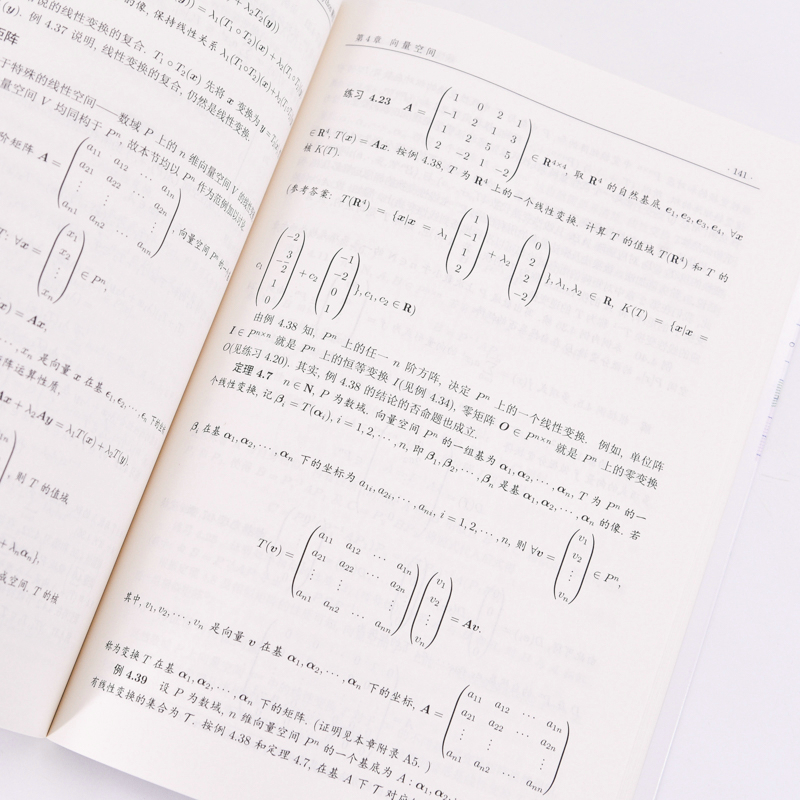 的像, 保持线性关系 λ₁(T₁∘T₂)(x)+λ₂(T₁∘T₂)(y)
(y). 例 4.37 说明, 线性变换的复合, 仍然是线性变换.
说的线性变换的复合. T₁∘T₂(x) 先将 x 变换为 y = T₂(x)
矩阵
于特殊的线性空间——数域 P 上的 n 维向量空间 V 的线性
量空间 V 均同构于 Pⁿ, 故本节均以 Pⁿ 作为范例加以讨论.
阶矩阵 A = (a₁₁ a₁₂ ⋯ a₁ₙ
a₂₁ a₂₂ ⋯ a₂ₙ
⋮ ⋮ ⋮
aₙ₁ aₙ₂ ⋯ aₙₙ), 向量空间 Pⁿ 的一
T: ∀x = (x₁
x₂
⋮
xₙ) ∈ Pⁿ,
(x) = Ax,
, xₙ 是向量 x 在基 ϵ₁, ϵ₂, ⋯, ϵₙ 下的坐
矩阵运算性质,
Ax + λ₂Ay = λ₁T(x) + λ₂T(y).
, 则 T 的值域
+ λₙαₙ},
成空间, T 的核
第 4 章 向量空间
· 141 ·
练习 4.23 A = (1 0 2 1
−1 2 1 3
1 2 5 5
2 −2 1 −2) ∈ R⁴ˣ⁴, 取 R⁴ 的自然基底 e₁, e₂, e₃, e₄, ∀x
∈ R⁴, T(x) = Ax. 按例 4.38, T 为 R⁴ 上的一个线性变换. 计算 T 的值域 T(R⁴) 和 T 的
核 K(T).
(参考答案: T(R⁴) = {x|x = λ₁ (1
−1
1
2) + λ₂ (0
2
2
−2)}, λ₁, λ₂ ∈ R, K(T) = {x|x =
c₁ (−2
−3/2
1
0) + c₂ (−1
−2
0
1)}, c₁, c₂ ∈ R)
由例 4.38 知, Pⁿ 上的任一 n 阶方阵, 决定 Pⁿ 上的一个线性变换. 例如, 单位阵
I ∈ Pⁿˣⁿ 就是 Pⁿ 上的恒等变换 I(见例 4.34), 零矩阵 O ∈ Pⁿˣⁿ 就是 Pⁿ 上的零变换
O(见练习 4.20). 其实, 例 4.38 的结论的否命题也成立.
定理 4.7 n ∈ N, P 为数域. 向量空间 Pⁿ 的一组基为 α₁, α₂, ⋯, αₙ, T 为 Pⁿ 的一
个线性变换, 记 βᵢ = T(αᵢ), i = 1, 2, ⋯, n, 即 β₁, β₂, ⋯, βₙ 是基 α₁, α₂, ⋯, αₙ 的像. 若
βᵢ 在基 α₁, α₂, ⋯, αₙ 下的坐标为 a₁ᵢ, a₂ᵢ, ⋯, aₙᵢ, i = 1, 2, ⋯, n, 则 ∀v = (v₁
v₂
⋮
vₙ) ∈ Pⁿ,
T(v) = (a₁₁ a₁₂ ⋯ a₁ₙ
a₂₁ a₂₂ ⋯ a₂ₙ
⋮ ⋮ ⋮
aₙ₁ aₙ₂ ⋯ aₙₙ) (v₁
v₂
⋮
vₙ) = Av.
其中, v₁, v₂, ⋯, vₙ 是向量 v 在基 α₁, α₂, ⋯, αₙ 下的坐标, A = (a₁₁ a₁₂ ⋯ a₁ₙ
a₂₁ a₂₂ ⋯ a₂ₙ
⋮ ⋮ ⋮
aₙ₁ aₙ₂ ⋯ aₙₙ)
称为变换 T 在基 α₁, α₂, ⋯, αₙ 下的矩阵. (证明见本章附录 A5. )
例 4.39 设 P 为数域, n 维向量空间 Pⁿ 的一个基底为 A: α₁, α₂,
有线性变换的集合为 T. 按例 4.38 和定理 4.7, 在基 A 下 T 对应